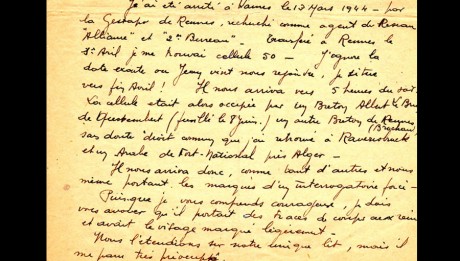 J'ai été arrêté à Vannes le 13 Mars 1944 - par
la Gestapo de Rennes, recherché comme agent du Réseau
"Alliance" et "2e Bureau" - Transféré à Rennes le
3 Avril je me trouvai cellule 50 - J'ignore la
date exacte où Jean vint nous rejoindre, je situe
vers fin Avril ! Il nous arriva vers 5 heures du soir.
La cellule était alors occupée par un Breton Albert Le B
de Questembert (fusillé le 8 Juin.) un autre Breton de Rennes,
sans doute droit commun que j'ai retrouvé à Ravensbruck
et un Arabe de Fort-National près Alger -
Il nous arriva donc, comme tant d'autres et nous
même portant les marques d'un interrogatoire
Puisque je vous comprends courageuse, je dois
vous avouer qu'il portait des traces de coups aux reins
et avait le visage marqué légèrement -
Nous l'étendîmes sur notre unique lit, mais il
me parut très préoccupé.